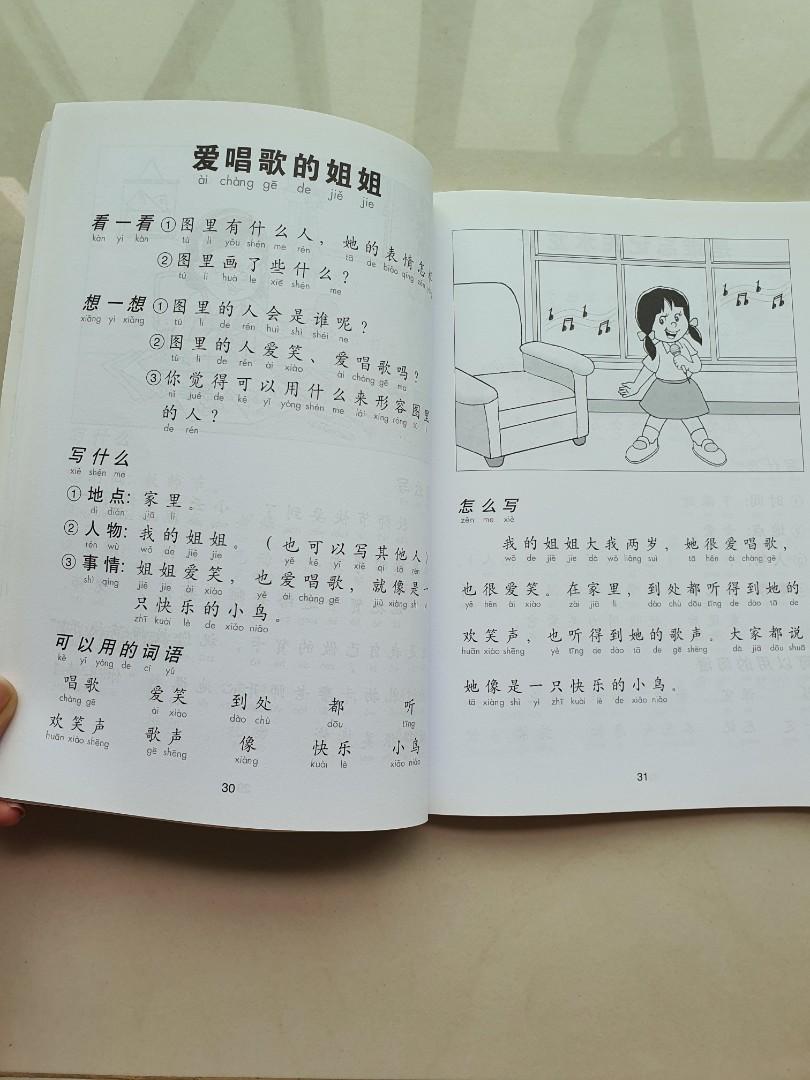 爱唱歌的姐姐
ài chàng gē de jiě jie
看一看 ①图里有什么人，她的表情怎
kàn yi kàn tú lǐ yǒu shén me rén tā de biǎo qíng zěn
②图里画了些什么？
tú lǐ huà le xiē shén me
想一想 ①图里的人会是谁呢？
xiǎng yi xiǎng tú lǐ de rén huì shì shéi ne
②图里的人爱笑、爱唱歌吗？
tú lǐ de rén ài xiào ài chàng gē ma
③你觉得可以用什么来形容图里
nǐ jué de kě yǐ yòng shén me lái xíng róng tú lǐ
的人？
de rén
写什么
xiě shén me
①地点：家里。
dì diǎn jiā lǐ
②人物：我的姐姐。（也可以写其他人）
rén wù wǒ de jiě jie yě kě yǐ xiě qí tā rén
③事情：姐姐爱笑，也爱唱歌，就像是一
shì qing jiě jie ài xiào yě ài chàng gē jiù xiàng shì
只快乐的小鸟。
zhī kuài lè de xiǎo niǎo
可以用的词语
kě yǐ yòng de cí yǔ
唱歌 爱笑 到处 都 听
chàng gē ài xiào dào chù dōu tīng
欢笑声 歌声 像 快乐 小鸟
huān xiào shēng gē shēng xiàng kuài lè xiǎo niǎo
30
怎么写
zěn me xiě
我的姐姐大我两岁，她很爱唱歌，
wǒ de jiě jie dà wǒ liǎng suì tā hěn ài chàng gē
也很爱笑。在家里，到处都听得到她的
yě hěn ài xiào zài jiā lǐ dào chù dōu tīng de dào tā de
欢笑声，也听得到她的歌声。大家都说
huān xiào shēng yě tīng de dào tā de gē shēng dà jiā dōu shuō
她像是一只快乐的小鸟。
tā xiàng shì yì zhī kuài lè de xiǎo niǎo
31